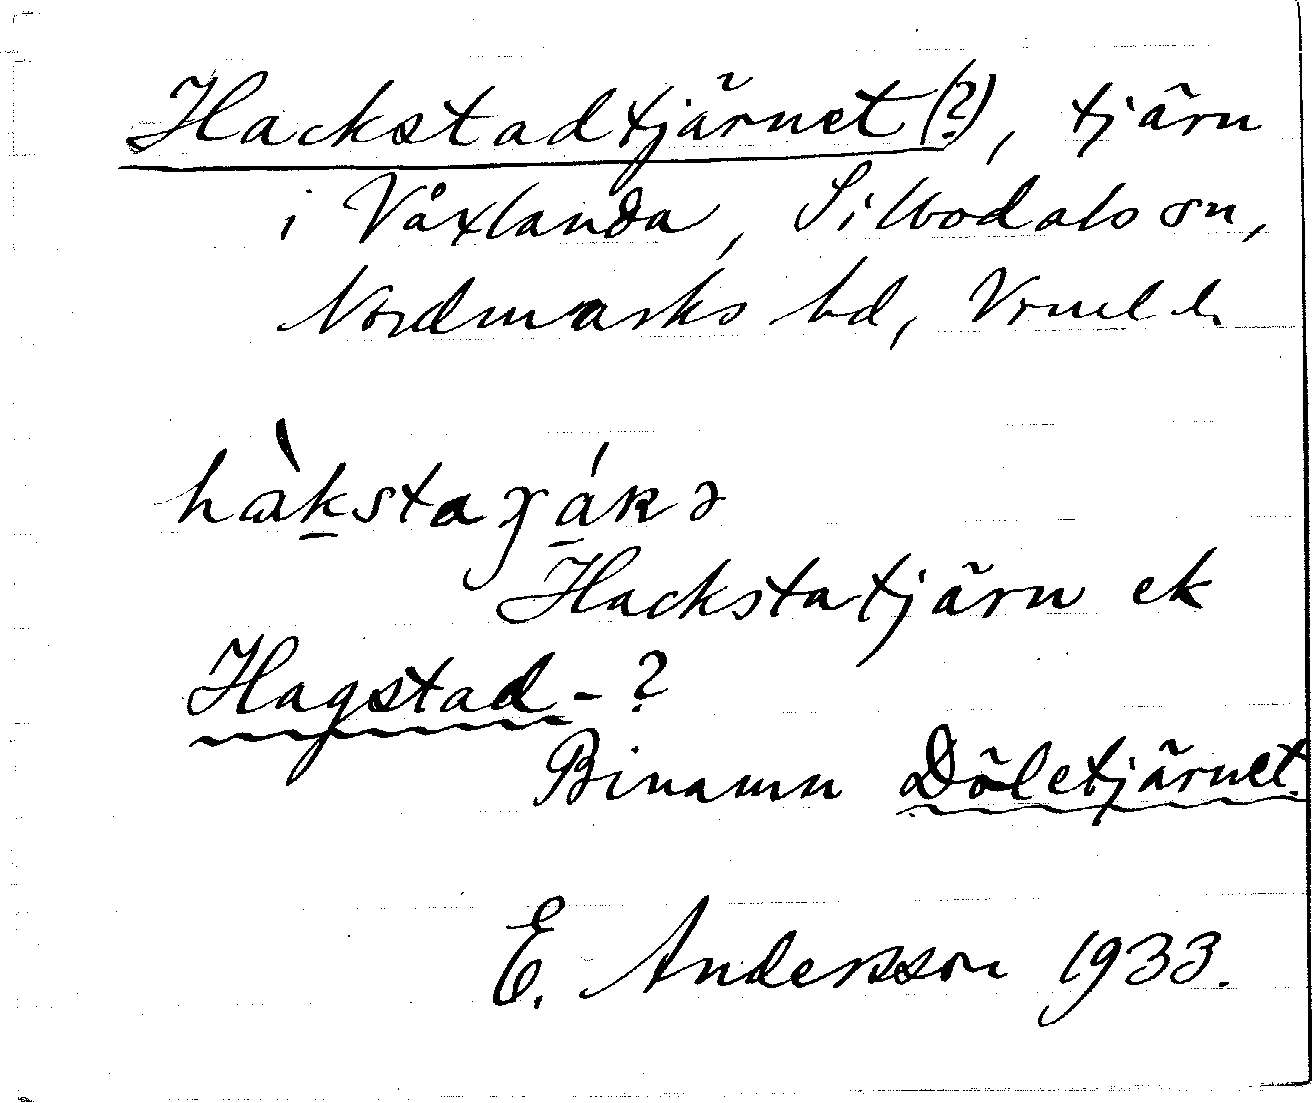 Hackstadtjärnet(?), tjärn
i Våxlanda, Silbodals sn,
Nordmarks hd, Vrml l.
Hackstatjärn ek
Hagstad-?
Binamn Dõletjärnet.
E. Andersson 1933.